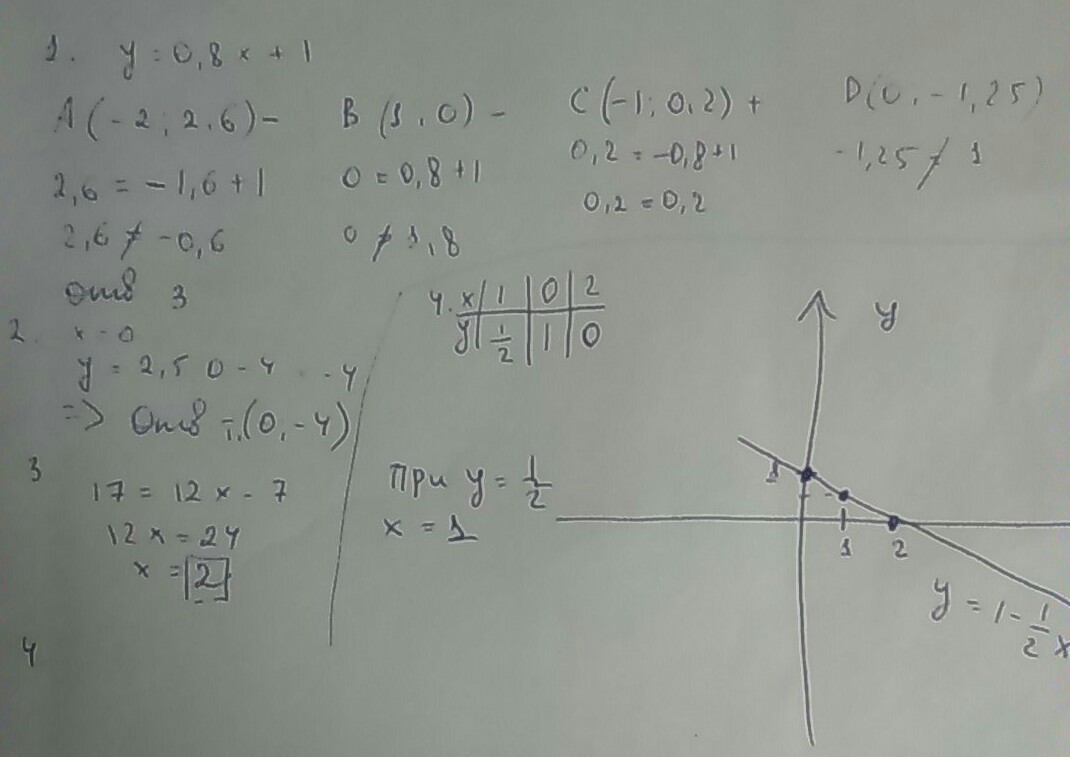 1. y = 0,8x + 1
A(-2; 2,6) -
2,6 = -1,6 + 1
2,6 ≠ -0,6
B(1, 0) -
0 = 0,8 + 1
0 ≠ 1,8
C(-1; 0,2) +
0,2 = -0,8 + 1
0,2 = 0,2
D(0, -1,25)
-1,25 ≠ 1
Отв 3
2. x = 0
y = 2,5 0 - 4 -4
=> Отв (0, -4)
3
17 = 12x - 7
12x = 24
x = 2
4
4. x | 1 | 0 | 2
y | 1/2 | 1 | 0
При y = 1/2
x = 1
y
1
1 2
y = 1 - 1/2 x